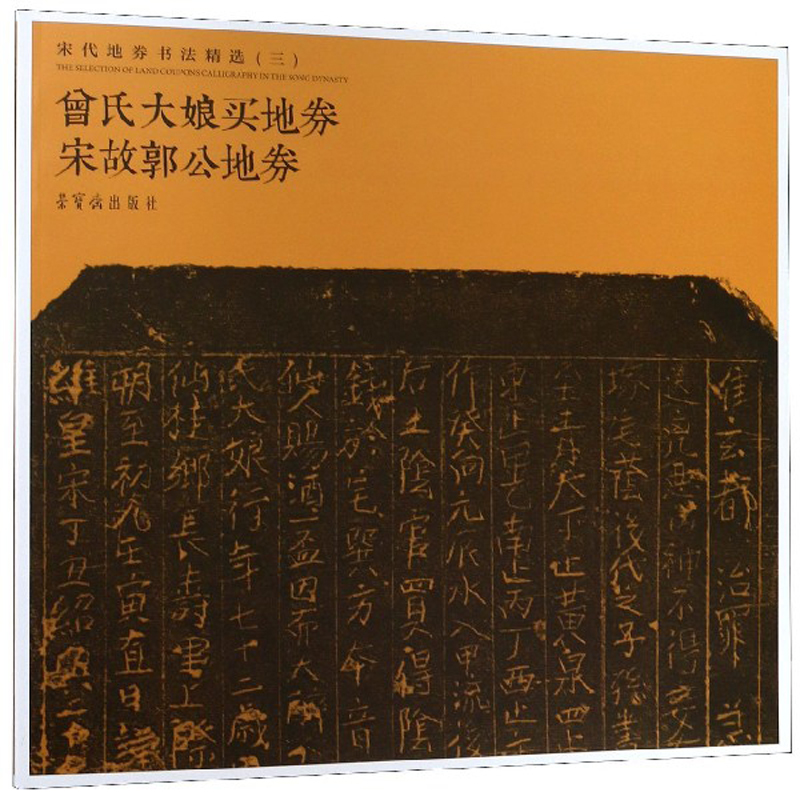 宋代地券书法精选(三)
THE SELECTION OF LAND COUPONS CALLIGRAPHY IN THE SONG DYNASTY
曾氏大娘买地券
宋故郭公地券
荣宝斋出版社
維皇宋丁丑紹興二十
朔至初九壬寅直日
仙桂鄉長壽里上際
氏大娘行年七十二歲
仙人賜酒一盃因而大醉
錢於宅巽方本音
后土陰官買得陰
作癸向元辰水入甲流
東止甲乙南止丙丁西止
至土止天丁止黃泉四止
塚宅蔭後代之子孫
神不得
准玄都治罪